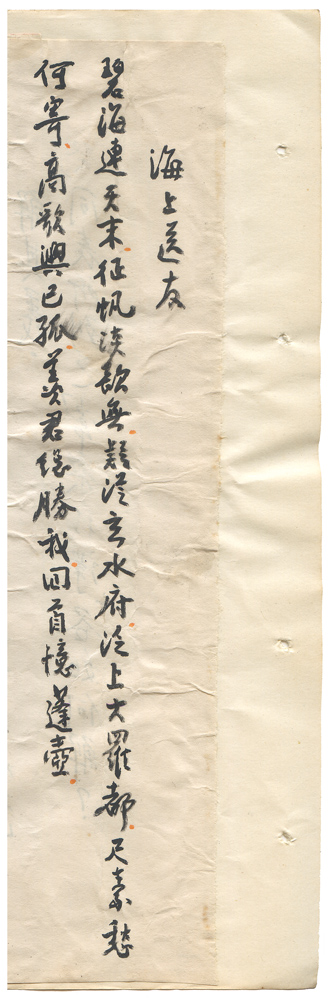 海上送友
碧海連天末征帆淡欲無疑從玄水府從上大羅都尺素愁
何寄高歌興已孤羨君總勝我回首憶蓬壺